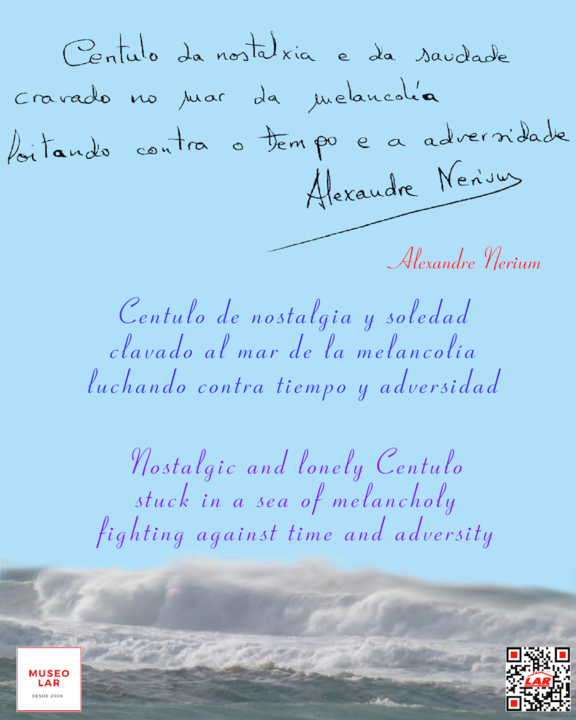 Centulo da nostalxia e da saudade
cravado no mar da melancolía
loitando contra o tempo e a adversidade
Alexandre Nerium
Alexandre Nerium
Centulo de nostalgia y soledad
clavado al mar de la melancolía
luchando contra tiempo y adversidad
Nostalgic and lonely Centulo
stuck in a sea of melancholy
fighting against time and adversity
MUSEO
LAR
DESDE 2006
LAR